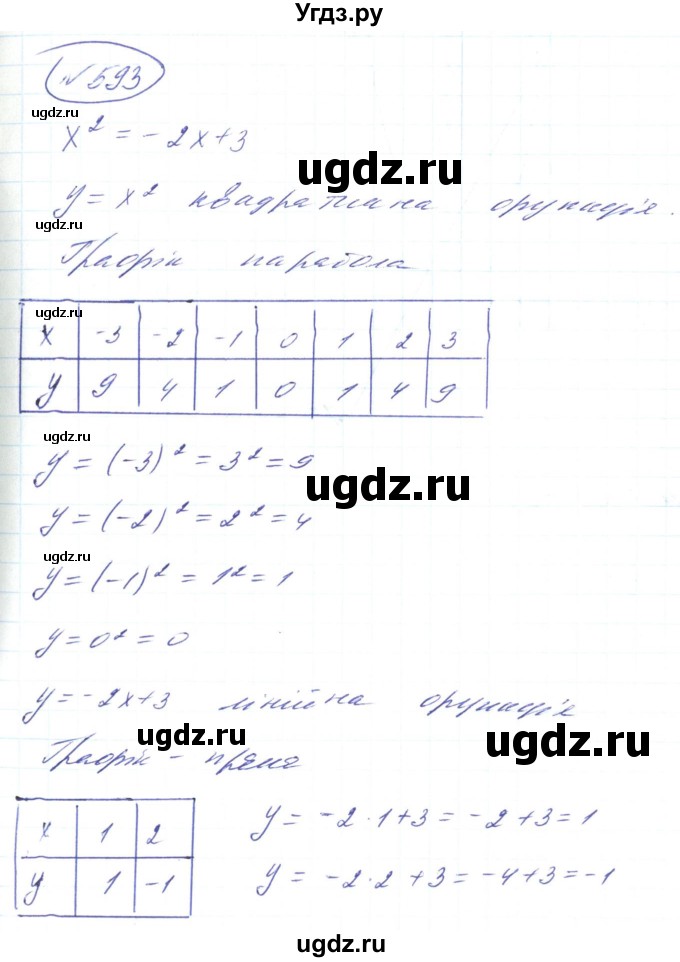 Угдз.ру
№593
ugdz.ru
x² = -2x+3
ugdz.ru
y = x² квадратична функція.
ugdz.ru
Графік парабола
ugdz.ru ugdz.ru
x -3 -2 -1 0 1 2 3
y 9 4 1 0 1 4 9
ugdz.ru
y = (-3)² = 3² = 9
ugdz.ru
y = (-2)² = 2² = 4
ugdz.ru
y = (-1)² = 1² = 1
y = 0² = 0
y = -2x+3 лінійна функція
ugdz.ru ugdz.ru
Графік - пряма
x 1 2
y 1 -1
y = -2·1+3 = -2+3 = 1
ugdz.ru
y = -2·2+3 = -4+3 = -1
ugdz.ru
ugdz.ru